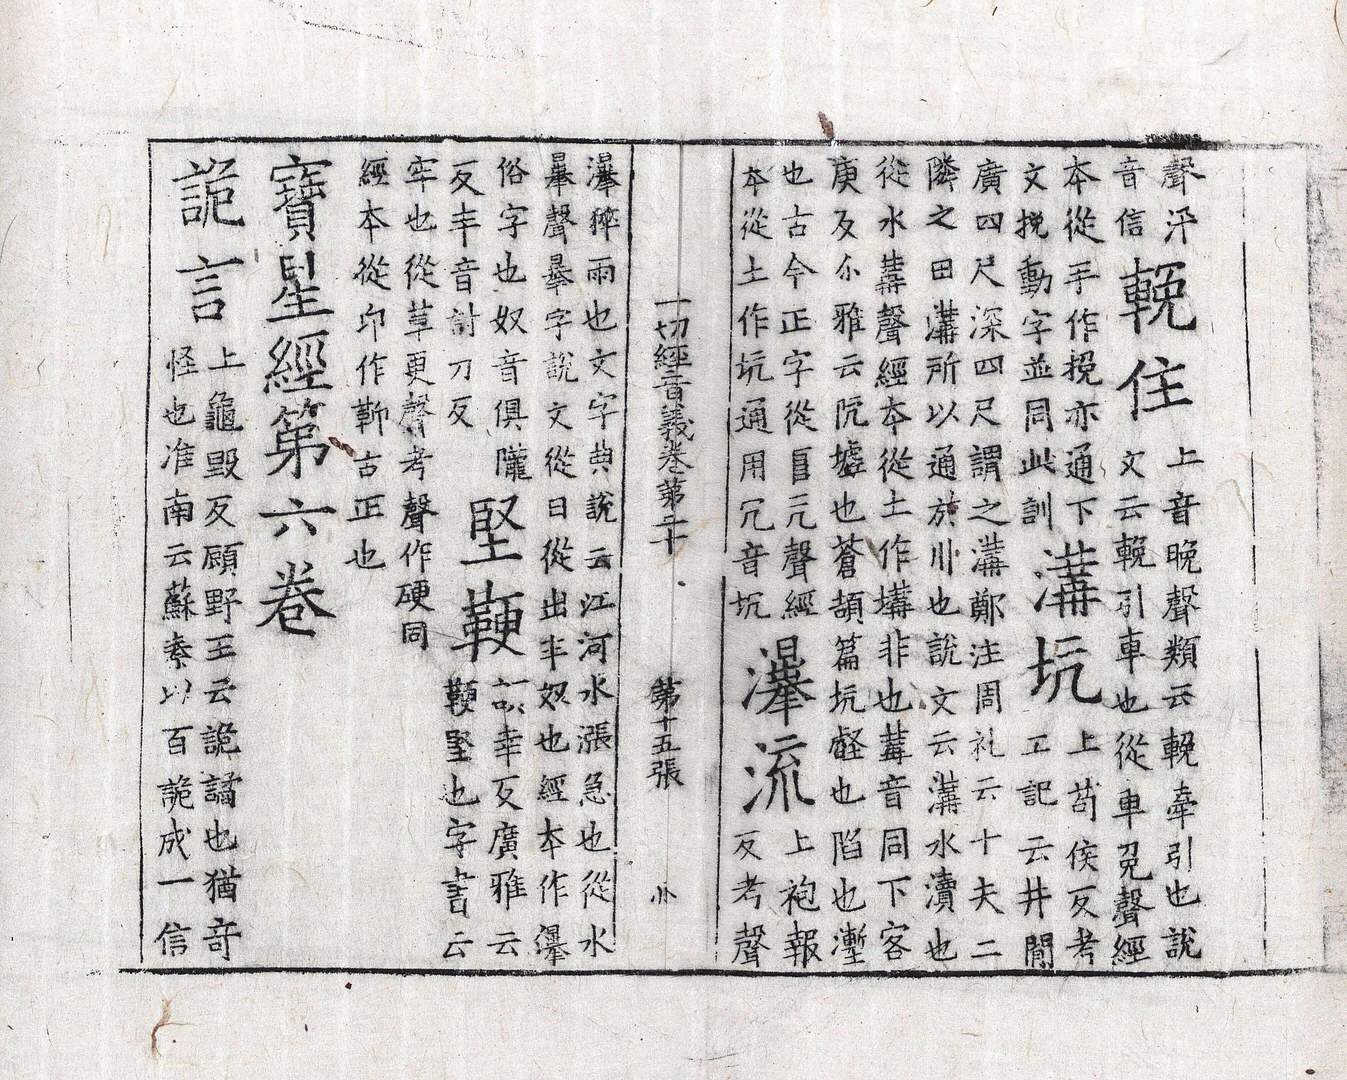 聲汧
音信
輓住
上音晚聲類云輓牽引也說
文云輓引車也從車免聲經
本從手作挽亦通下
文挽動字並同此訓
溝坑
上苟侯反考
工記云井間
廣四尺深四尺謂之溝鄭注周礼云十夫二
隣之田溝所以通於川也說文云溝水瀆也
從水冓聲經本從土作墷非也冓音同下客
庚反尒雅云阬墟也蒼頡篇坑壑也陷也壍
也古今正字從𨸏亢聲經
本從土作坑通用冗音坑
瀑流
上袍報
反考聲
一切經音義卷第二十 第十五張
瀑猝雨也文字典說云江河水漲急也從水
暴聲暴字說文從日從出半奴也經本作瀑
俗字也奴音俱隴
反半音討刀反
堅鞕
幸反廣雅云
鞕堅也字書云
牢也從革更聲考聲作硬同
經本從卬作䩕古正也
寶星經第六卷
詭言
上龜毀反顧野王云詭譎也猶奇
怪也准南云蘇秦以百詭成一信